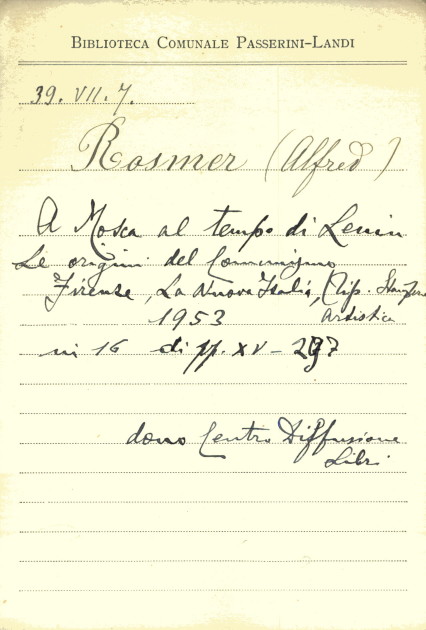 BIBLIOTECA COMUNALE PASSERINI-LANDI
39. VII. 7.
Rosmer (Alfred)
A Mosca al tempo di Lenin
Le origini del Comunismo
Firenze, La Nuova Italia, (Tip. Stamperia
1953 Artistica
in 16 di pp. XV-297
dono Centro Diffusione
Libri